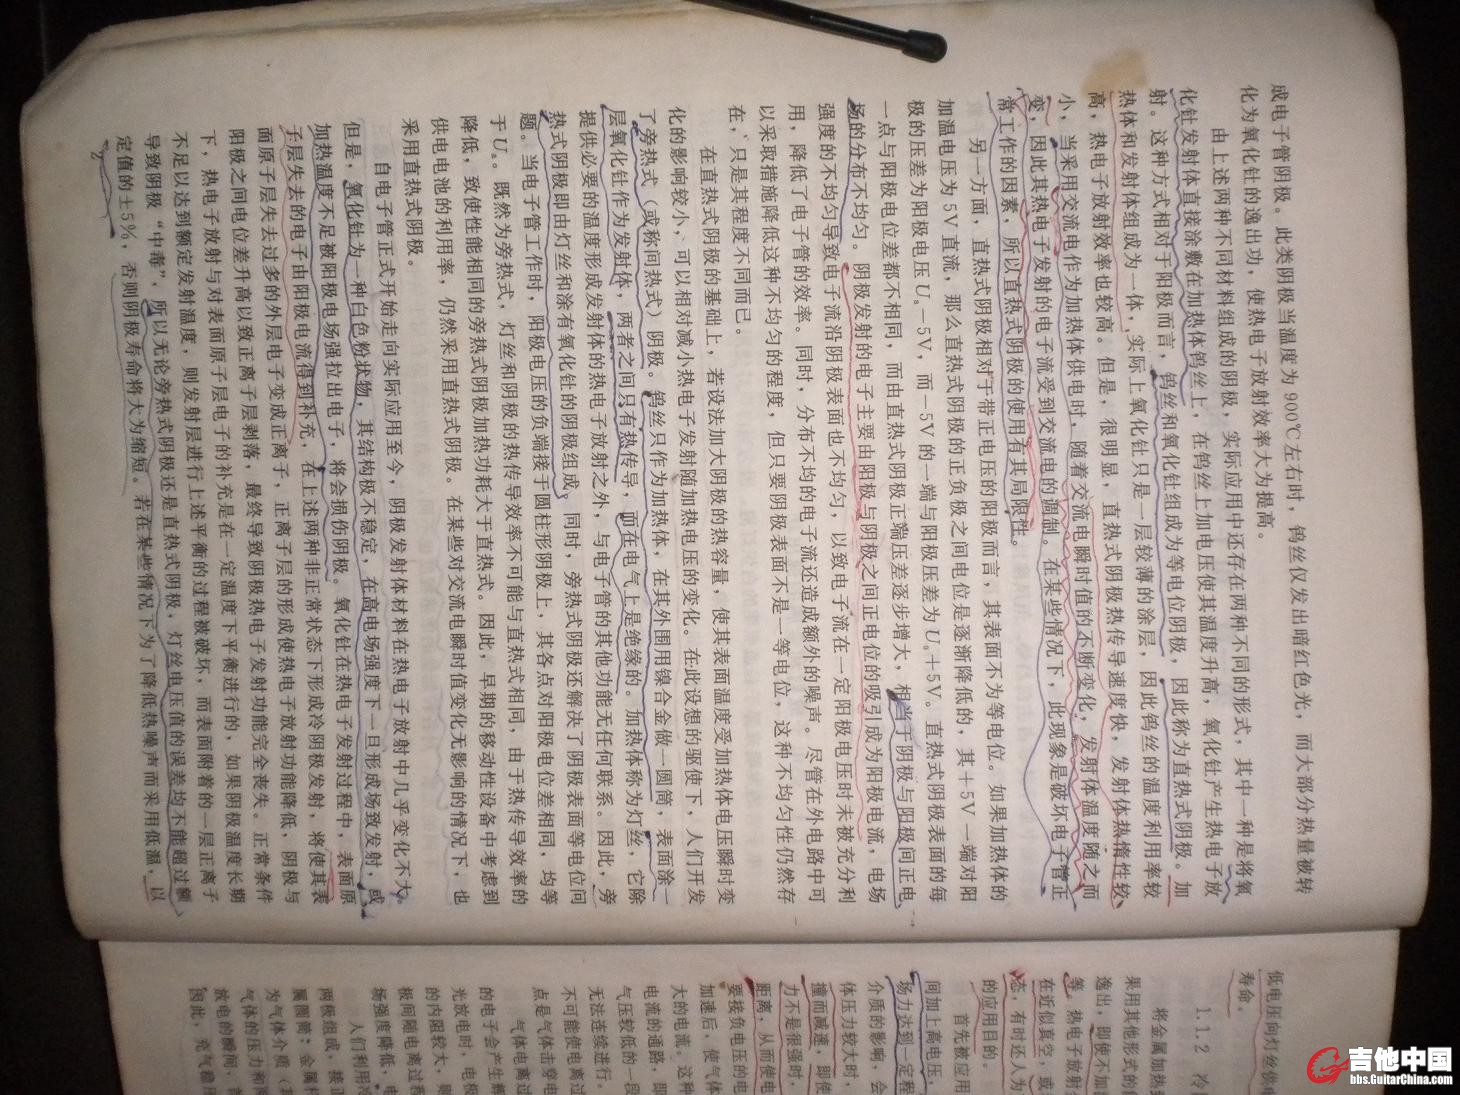 成电子管阴极。此类阴极当温度为900℃左右时，钨丝仅发出暗红色光，而大部分热量被转
化为氧化钍的逸出功，使热电子放射效率大为提高。
由上述两种不同材料组成的阴极，实际应用中还存在两种不同的形式，其中一种是将氧
化钍发射体直接涂敷在加热体钨丝上，在钨丝上加电压使其温度升高，氧化钍产生热电子放
射。这种方式相对于阳极而言，钨丝和氧化钍组成为等电位阴极，因此称为直热式阴极。加
热体和发射体组成为一体，实际上氧化钍只是一层较薄的涂层，因此钨丝的温度利用率较
高，热电子放射效率也较高。但是，很明显，直热式阴极热传导速度快，发射体热惰性较
小，当采用交流电作为加热体供电时，随着交流电瞬时值的不断变化，发射体温度随之而
变，因此其热电子发射的电子流受到交流电的调制。在某些情况下，此现象是破坏电子管正
常工作的因素，所以直热式阴极的使用有其局限性。
另一方面，直热式阴极相对于带正电压的阳极而言，其表面不为等电位。如果加热体的
加温电压为5V直流，那么直热式阴极的正负极之间电位是逐渐降低的，其＋5V一端对阳
极的压差为阳极电压Ua－5V，而－5V的一端与阳极压差为Ua＋5V。直热式阴极表面的每
一点与阳极电位差都不相同，而由直热式阴极正端压差逐步增大，相当于阴极与阳极间正电
场的分布不均匀。阴极发射的电子主要由阳极与阴极之间正电位的吸引成为阳极电流，电场
强度的不均匀导致电子流沿阴极表面也不均匀，以致电子流在一定阳极电压时未被充分利
用，降低了电子管的效率。同时，分布不均的电子流还造成额外的噪声。尽管在外电路中可
以采取措施降低这种不均匀的程度，但只要阴极表面不是一等电位，这种不均匀性仍然存
在，只是其程度不同而已。
在直热式阴极的基础上，若设法加大阴极的热容量，使其表面温度受加热体电压瞬时变
化的影响较小，可以相对减小热电子发射随加热电压的变化。在此设想的驱使下，人们开发
了旁热式（或称间热式）阴极。钨丝只作为加热体，在其外围用镍合金做一圆筒，表面涂一
层氧化钍作为发射体，两者之间只有热传导，而在电气上是绝缘的。加热体称为灯丝，它除
提供必要的温度形成发射体的热电子放射之外，与电子管的其他功能无任何联系。因此，旁
热式阴极即由灯丝和涂有氧化钍的阴极组成。同时，旁热式阴极还解决了阴极表面等电位问
题。当电子管工作时，阳极电压的负端接于圆柱形阴极上，其各点对阳极电位差相同，均等
于Ua。既然为旁热式，灯丝和阴极的热传导效率不可能与直热式相同，由于热传导效率的
降低，致使性能相同的旁热式阴极加热功耗大于直热式。因此，早期的移动性设备中考虑到
供电电池的利用率，仍然采用直热式阴极。在某些对交流电瞬时值变化无影响的情况下，也
采用直热式阴极。
自电子管正式开始走向实际应用至今，阴极发射体材料在热电子放射中几乎变化不大。
但是，氧化钍为一种白色粉状物，其结构极不稳定，在高电场强度下一旦形成场致发射，或
加热温度不足被阳极电场强拉出电子，将会损伤阴极。氧化钍在热电子发射过程中，表面原
子层失去的电子由阳极电流得到补充，在上述两种非正常状态下形成冷阴极发射，将使其表
面原子层失去过多的外层电子变成正离子，正离子层的形成使热电子放射功能降低，阴极与
阳极之间电位差升高以致正离子层剥落，最终导致阴极热电子发射功能完全丧失。正常条件
下，热电子放射与对表面原子层电子的补充是在一定温度下平衡进行的，如果阴极温度长期
不足以达到额定发射温度，则发射层进行上述平衡的过程被破坏，而表面附着的一层正离子
导致阴极“中毒”，所以无论旁热式阴极还是直热式阴极，灯丝电压值的误差均不能超过额
定值的±5%，否则阴极寿命将大为缩短。若在某些情况下为了降低热噪声而采用低温，以
2
低电压向灯丝供电
寿命。
1.1.2 冷
将金属加热到
果用其他形式的
逸出，即使不加
等。热电子放射
在近似真空，或
态，有时还人为
的应用目的。
首先被应用
间加上高电压，
场力达到一定程
介质的影响，会
体压力较大时，
撞而减速，即使
力不是很强时，
距离，从而使电
要接负电压的电
加速后，使气体
大的电流。这种
电流的通路，即
气压较低的一段
无法连续进行。
不可能使电离过
点是气体击穿电
气体电离过
的电子会产生
光放电时，电极
的内阻较大，则
极间随电离过程
场强度降低，电
人们利用冷
两极组成，接正
属圆筒；金属
为气体介质（
气体的压力和
放电的瞬间，
因此，充气稳
吉他中国
bbs.GuitarChina.com